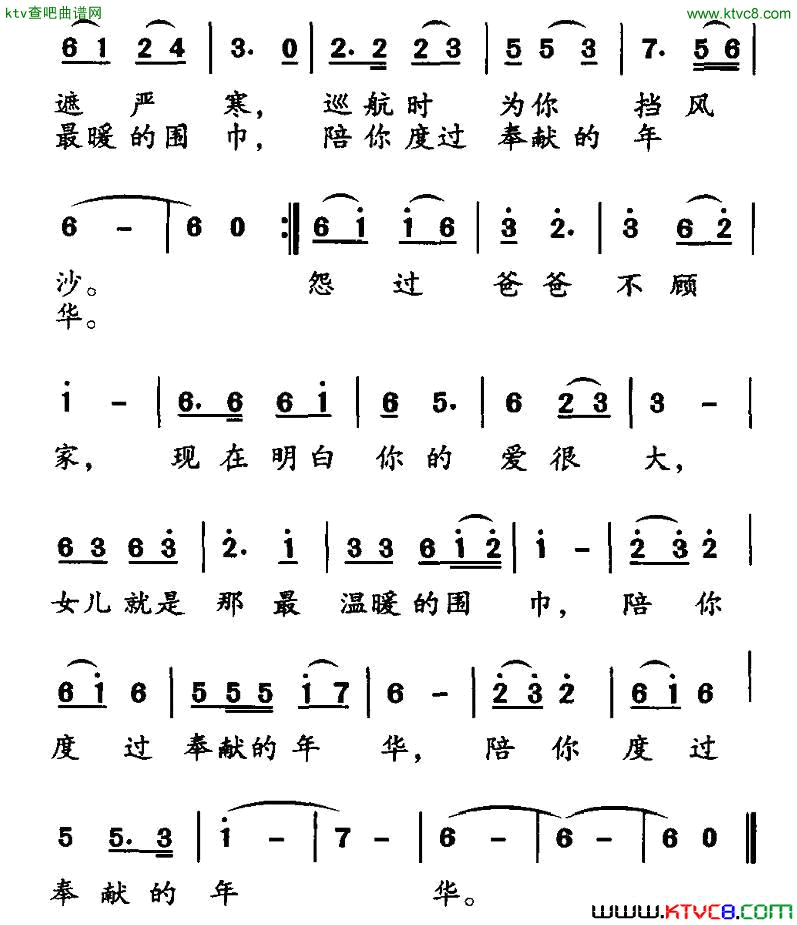 ktv查吧曲谱网 www.ktvc8.com
6 1 2 4 | 3. 0 | 2. 2 2 3 | 5 5 3 | 7. 5 6 |
遮 严 寒， 巡航时 为你 挡风
最暖的围巾， 陪你度过 奉献的年
6 - | 6 0 :| 6 i i 6 | 3 2. | 3 6 2 |
沙。 怨 过 爸爸 不顾
华。
i - | 6. 6 6 i | 6 5. | 6 2 3 | 3 - |
家， 现在明白 你的 爱很 大，
6 3 6 3 | 2. i | 3 3 6 i 2 | i - | 2 3 2 |
女儿就是 那最 温暖的围 巾， 陪你
6 i 6 | 5 5 5 i 7 | 6 - | 2 3 2 | 6 i 6 |
度过 奉献的年 华， 陪你 度过
5 5. 3 | i - | 7 - | 6 - | 6 - | 6 0 ||
奉献的年 华。
www.KTVC8.COM